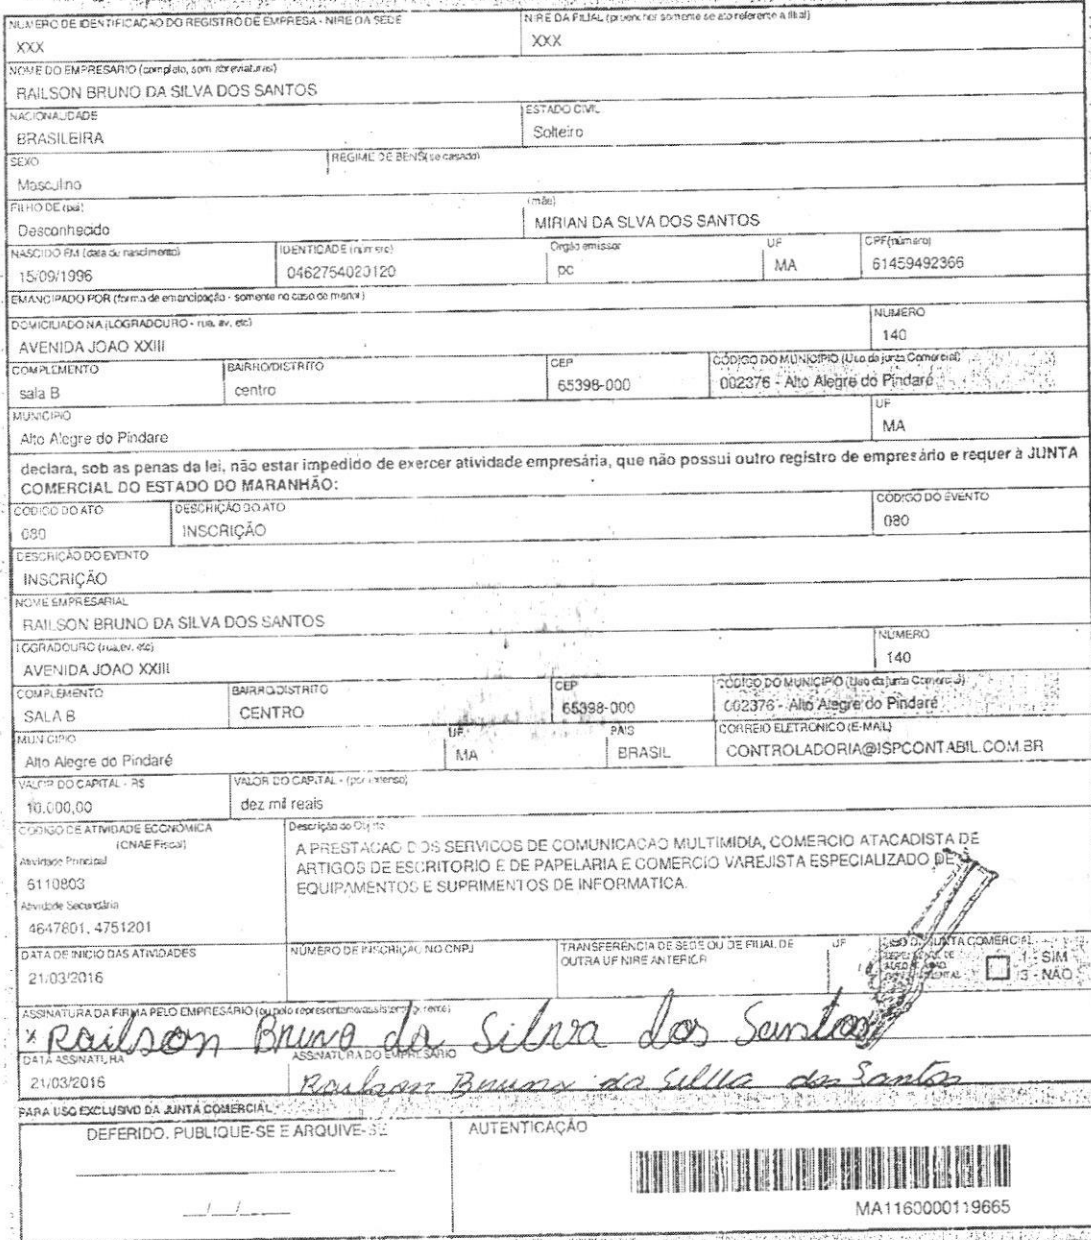 NÚMERO DE IDENTIFICAÇÃO DO REGISTRO DE EMPRESA - NIRE DA SEDE
NIRE DA FILIAL (preencher somente se ato referente a filial)
XXX
XXX
NOME DO EMPRESÁRIO (completo, sem abreviaturas)
RAILSON BRUNO DA SILVA DOS SANTOS
NACIONALIDADE
ESTADO CIVIL
BRASILEIRA
Solteiro
SEXO
REGIME DE BENS (se casado)
Masculino
FILHO DE (pai)
(mãe)
Desconhecido
MIRIAN DA SLVA DOS SANTOS
NASCIDO EM (data de nascimento)
IDENTIDADE (número)
Orgão emissor
UF
CPF (número)
15/09/1996
0462754020120
pc
MA
61459492366
EMANCIPADO POR (forma de emancipação - somente no caso de menor)
DOMICILIADO NA (LOGRADOURO - rua, av, etc)
NUMERO
AVENIDA JOAO XXIII
140
COMPLEMENTO
BAIRRO/DISTRITO
CEP
CÓDIGO DO MUNICIPIO (Uso da junta Comercial)
sala B
centro
65398-000
002376 - Alto Alegre do Pindaré
MUNICIPIO
UF
Alto Alegre do Pindare
MA
declara, sob as penas da lei, não estar impedido de exercer atividade empresária, que não possui outro registro de empresário e requer à JUNTA
COMERCIAL DO ESTADO DO MARANHÃO:
CODIGO DO ATO
DESCRIÇÃO DO ATO
CODIGO DO EVENTO
080
INSCRIÇÃO
080
DESCRIÇÃO DO EVENTO
INSCRIÇÃO
NOME EMPRESARIAL
RAILSON BRUNO DA SILVA DOS SANTOS
LOGRADOURO (rua, av, etc)
NUMERO
AVENIDA JOAO XXIII
140
COMPLEMENTO
BAIRRO/DISTRITO
CEP
CODIGO DO MUNICIPIO (Uso da Junta Comercial)
SALA B
CENTRO
65398-000
002376 - Alto Alegre do Pindaré
MUNICIPIO
UF
PAIS
CORREIO ELETRONICO (E-MAIL)
Alto Alegre do Pindaré
MA
BRASIL
CONTROLADORIA@ISPCONTABIL.COM.BR
VALOR DO CAPITAL - R$
VALOR DO CAPITAL - (por extenso)
10.000,00
dez mil reais
CODIGO DE ATIVIDADE ECONÔMICA
(CNAE Fiscal)
Descrição do Objeto
Atividade Principal
6110803
Atividade Secundária
4647801, 4751201
A PRESTACAO DOS SERVICOS DE COMUNICACAO MULTIMIDIA, COMERCIO ATACADISTA DE
ARTIGOS DE ESCRITORIO E DE PAPELARIA E COMERCIO VAREJISTA ESPECIALIZADO DE
EQUIPAMENTOS E SUPRIMENTOS DE INFORMATICA.
DATA DE INICIO DAS ATIVIDADES
NÚMERO DE INSCRIÇÃO NO CNPJ
TRANSFERENCIA DE SEDE OU DE FILIAL DE
OUTRA UF NIRE ANTERIOR
UF
USO DA JUNTA COMERCIAL
1 - SIM
3 - NÃO
21/03/2016
ASSINATURA DA FIRMA PELO EMPRESÁRIO (ou pelo representante/assistente/gerente)
x Railson Bruno da Silva dos Santos
DATA ASSINATURA
ASSINATURA DO EMPRESARIO
21/03/2016
Railson Bruno da Silva dos Santos
PARA USO EXCLUSIVO DA JUNTA COMERCIAL
DEFERIDO. PUBLIQUE-SE E ARQUIVE-SE
AUTENTICAÇÃO
__/__/____
MA1160000119665